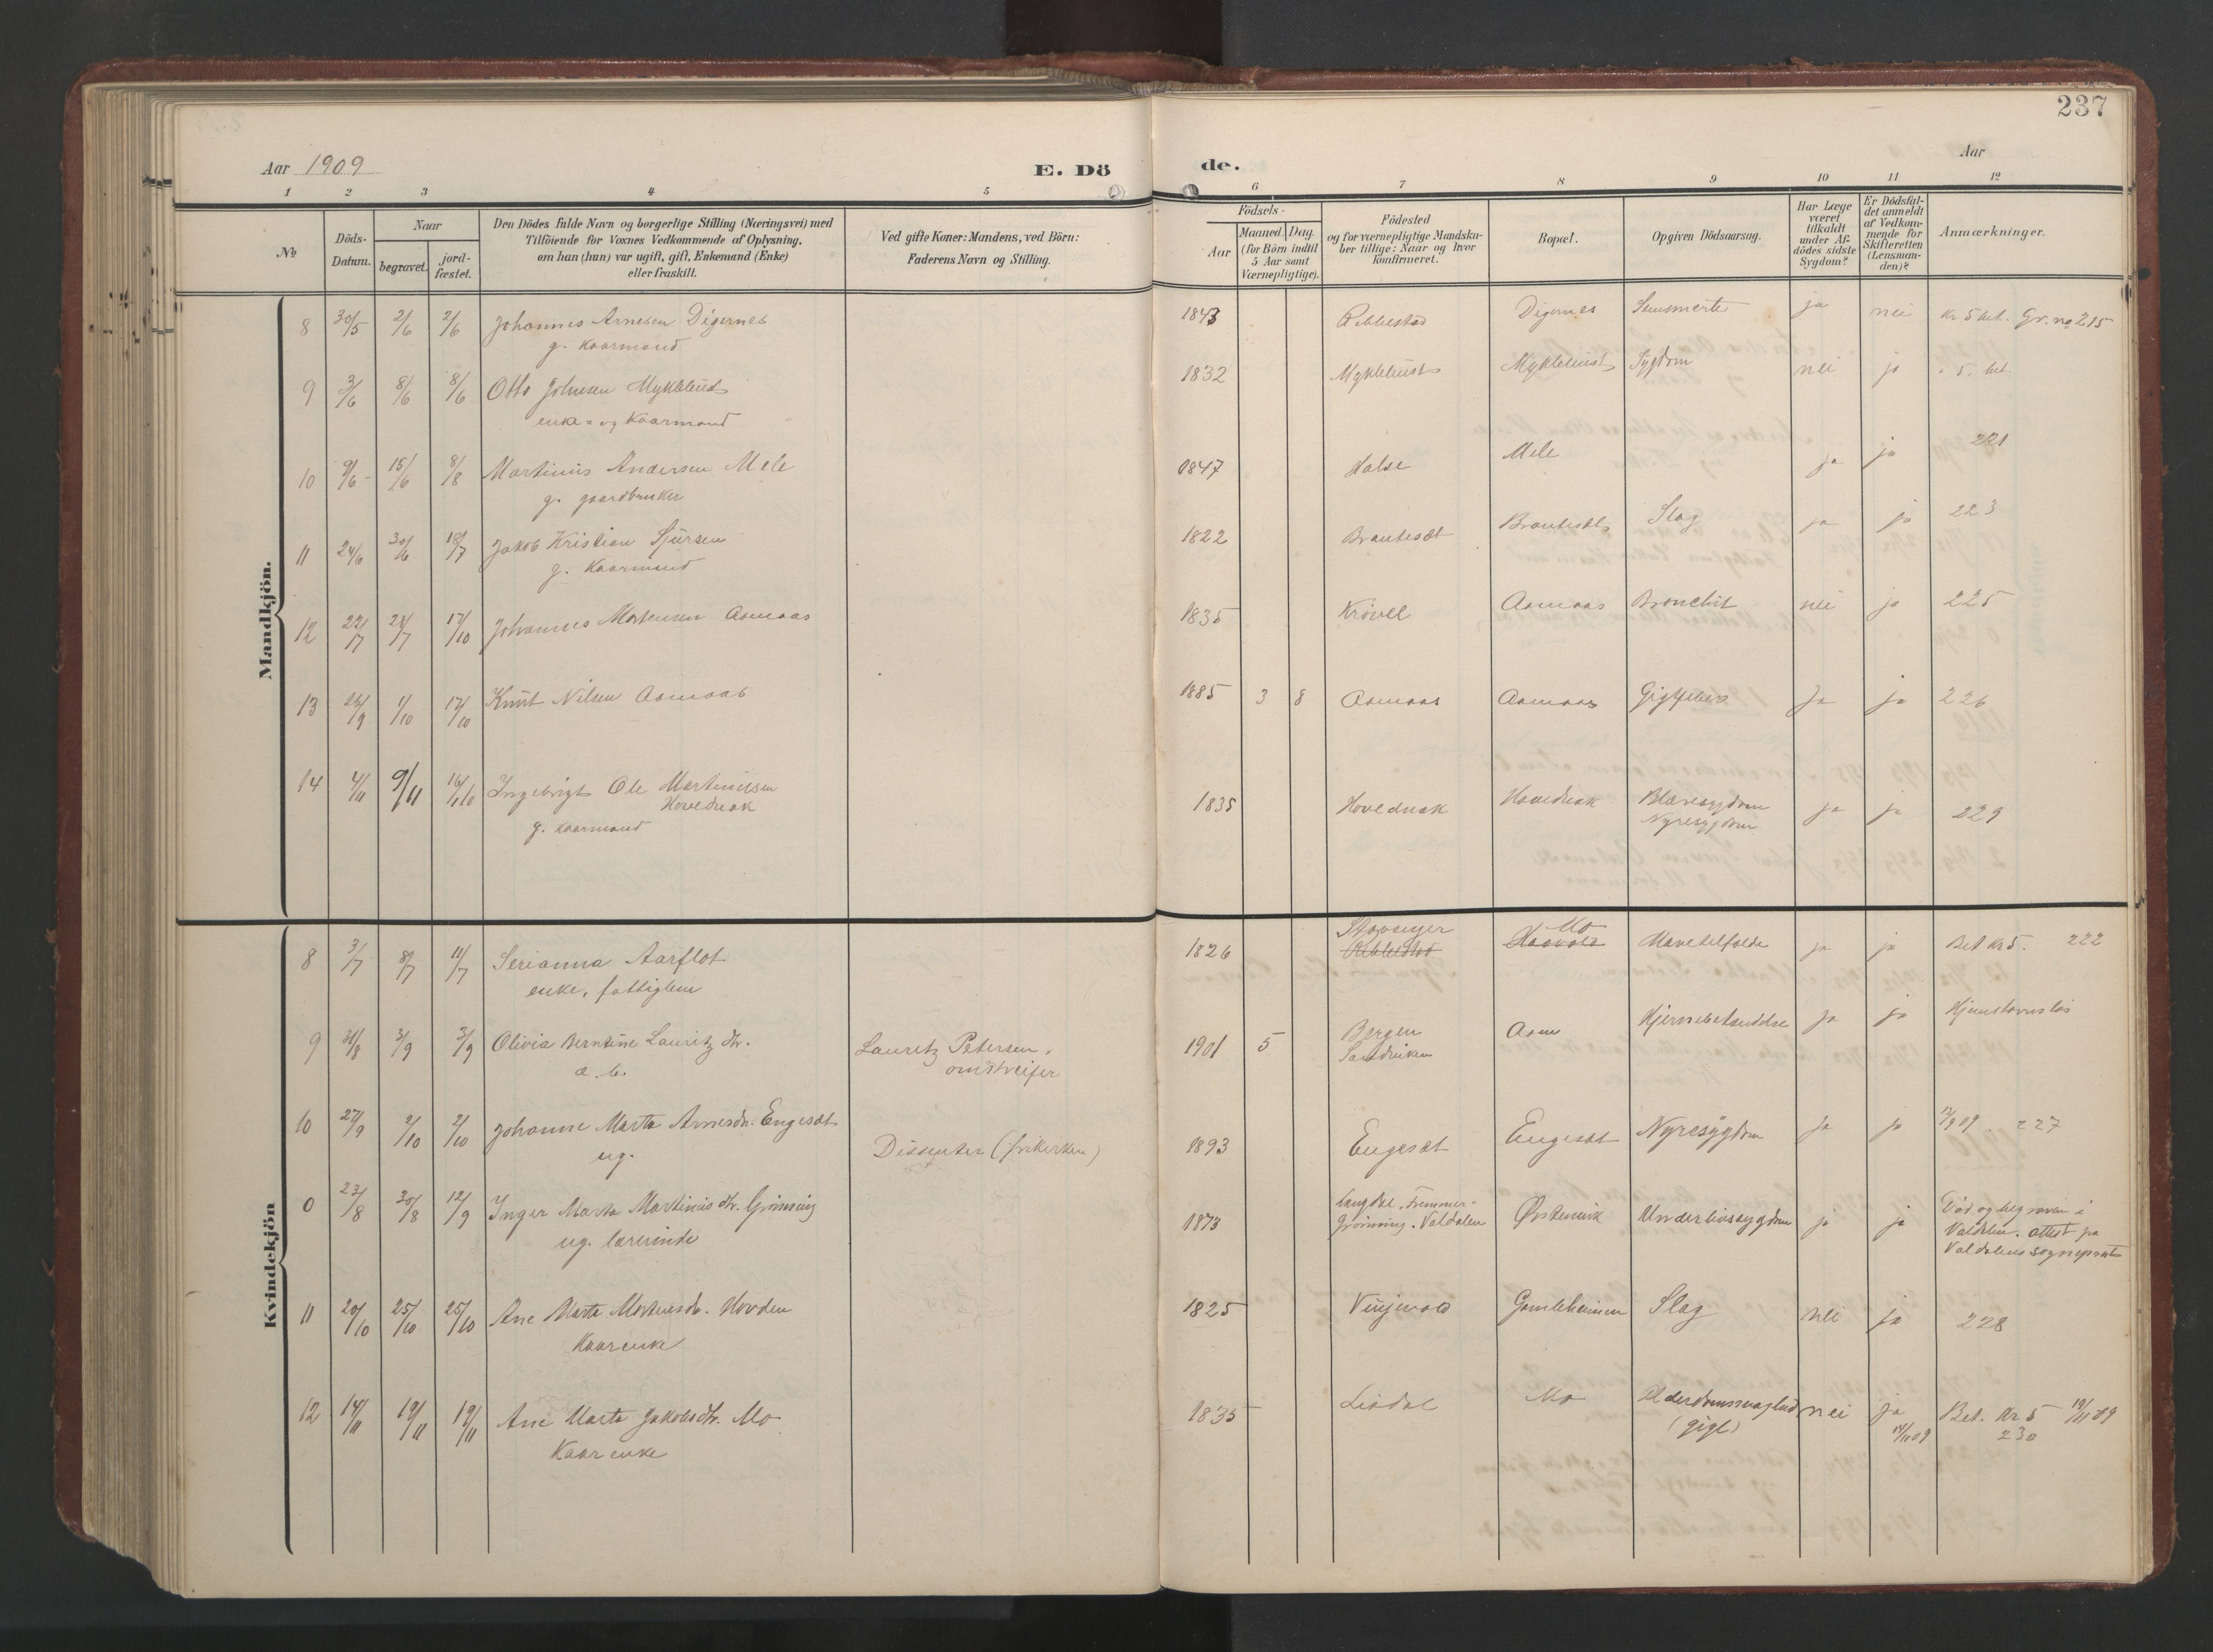 237
Aar 1909
E. Dö
de.
Aar
1 2 3 4 5 6 7 8 9 10 11 12
No
Döds-
Datum.
Naar
begravet.
jord-
fæstet.
Den Dödes fulde Navn og borgerlige Stilling (Næringsvei) med
Tilföiende for Voxnes Vedkommende af Oplysning,
om han (hun) var ugift, gift, Enkemand (Enke)
eller fraskilt.
Ved gifte Koner: Mandens, ved Börn:
Faderens Navn og Stilling.
Födsels-
Aar
Maaned. Dag.
(for Börn indtil
5 Aar samt
Værnepligtige).
Födested
og for værnepligtige Mandska-
ber tillige: Naar og hvor
konfirmeret.
Bopæl.
Opgiven Dödsaarsag.
Har Læge
været
tilkaldt
under Af-
dödes sidste
Sygdom?
Er Dödsfal-
det anmeldt
af Vedkom-
mende for
Skifteretten
(Lensman-
den)?
Anmærkninger.
Mandkjön.
8 30/5 2/6 2/6 Johannes Arnesen Digernes 1843 Ribbestad Digernes ja nei Kr 5 bet. Gr. no 215
g. Kaarmand
9 3/6 8/6 8/6 Otto Johnsen Myklebust 1832 Myklebust Myklebust Sygdom nei ja " 5. bet
enke- og Kaarmand
10 9/6 15/6 8/8 Martinus Andersen Mele 1847 Halse Mele ja ja 221
g. gaardbruker
11 24/6 30/6 18/7 Jakob Kristian Sjursen 1822 Brautesæt Brautesæt Slag ja ja 223
g. Kaarmand
12 22/7 28/7 17/10 Johannes Mortensen Aamaas 1835 Krøvel Aamaas Bronchit nei ja 225
13 26/9 1/10 17/10 Knut Nilsen Aamaas 1885 3 8 Aamaas Aamaas Gigtfeber Ja ja 226
14 4/11 9/11 16/10 Ingebrigt Ole Martinussen 1835 Hovednak Hovednak Blæresygdom ja ja 229
Hovednak Nyresygdom
g. Kaarmand
Kvindekjön
Mo
8 3/7 8/7 11/7 Serianna Aarflot 1826 Ribbestad Mavetilfælde ja ja Bet kr 5. 222
enke, fattiglem
9 31/8 3/9 3/9 Olivia Berntine Lauritz dtr. Lauretz Petersen, 1901 5 Bergen Aam Hjernebetændelse ja ja Hjemstavnsløs
æ. b. omstreifer Sandviken
10 27/9 2/10 2/10 Johanne Marta Arnesdtr. Engesæt Dissenter (frikirken) 1893 Engesæt Engesæt Nyresygdom ja ja 227
ug.
0 23/8 30/8 12/9 Inger Marta Martinus dtr. Grønning 1873 Grønning. Valdalen Ørstenvik Underlivssygdom ja ja Død og begraven i
ug. lærerinde Valdalen. attest fra
Valdalens sogneprest
11 20/10 25/10 25/10 Ane Marta Mortensdtr. Hovden 1825 Vinjevold Gamleheimen Slag nei ja 228
Kaarenke
12 14/11 19/11 19/11 Ane Marta Jakobsdtr. Mo 1835 Lisdal Mo Alderdomssvaghed nei ja Bet. Kr 5 19/11 09
Kaarenke (gigt) 19/11 09 230